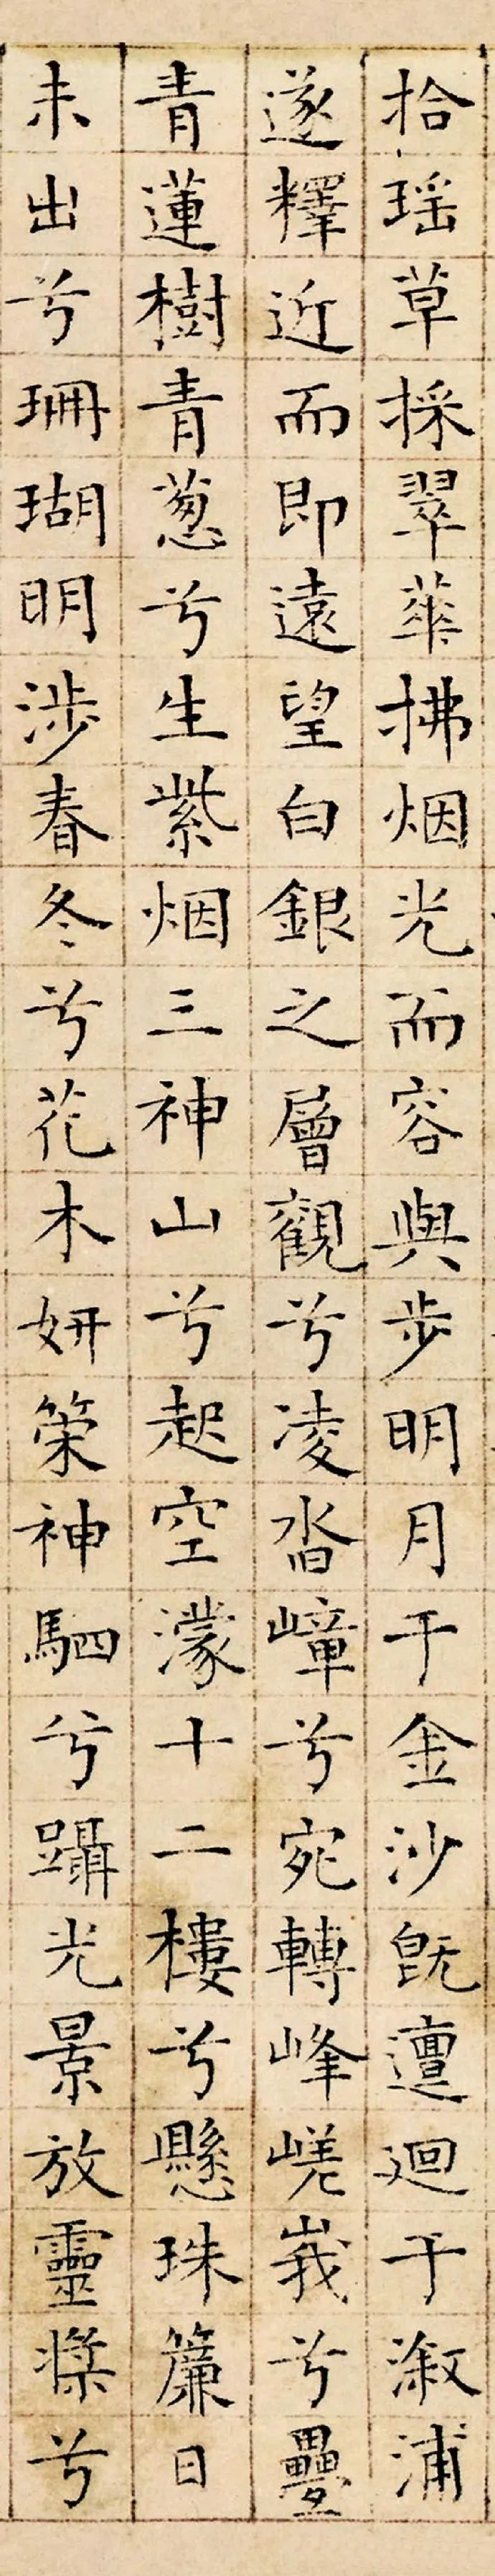 拾瑶草採翠華拂烟光而容與步明月于金沙既邅廻于溆浦
遂釋近而即遠望白銀之層觀兮凌沓嶂兮宛轉峰嵯峩兮疊
青蓮樹青葱兮生紫烟三神山兮起空濛十二樓兮懸珠簾日
未出兮珊瑚明涉春冬兮花木妍策神駟兮躡光景放靈槳兮